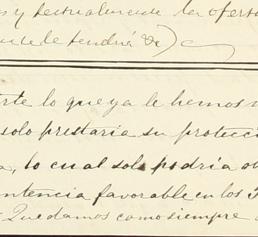 s y textualmente la oferta
de tendria &)
rte lo que ya le hemos
solo prestaria su protecci
a, lo cual solo podria ob
ntencia favorable en los
Quedamos como siempre